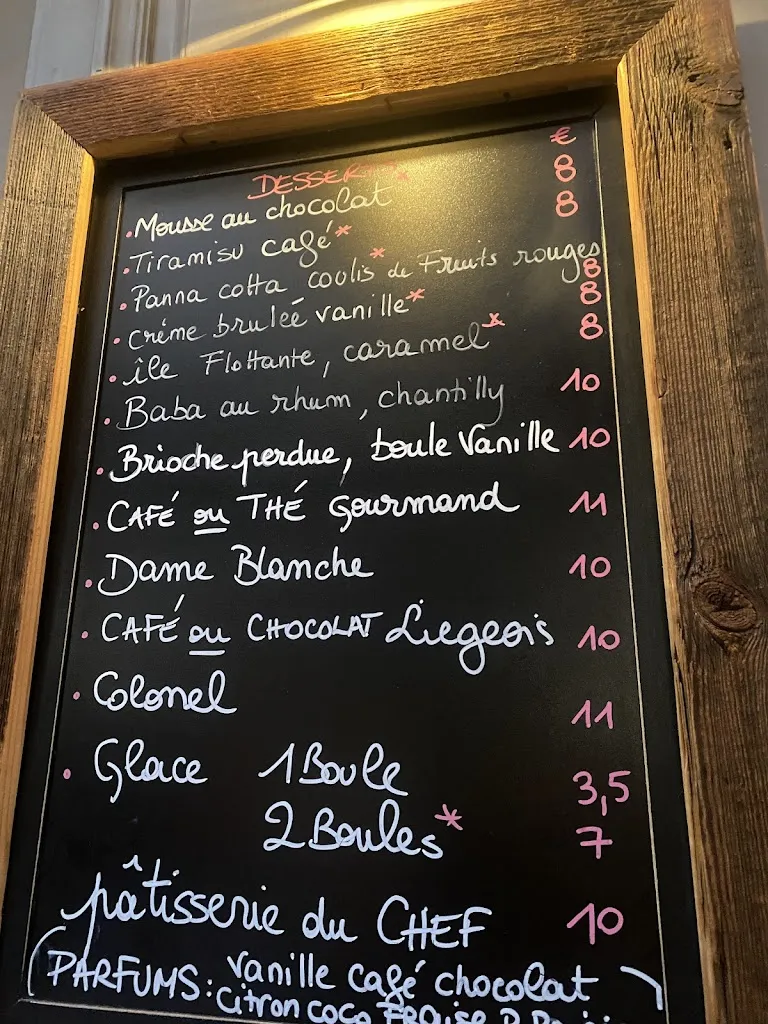 DESSERTS €
• Mousse au chocolat 8
• Tiramisu café* 8
• Panna cotta coulis* de Fruits rouges 8
• Créme bruleé vanille* 8
• île Flottante, caramel* 8
• Baba au rhum, chantilly 10
• Brioche perdue, boule Vanille 10
• CAFÉ ou THÉ Gourmand 11
• Dame Blanche 10
• CAFÉ ou CHOCOLAT Liegeois 10
• Colonel 11
• Glace 1 Boule 3,5
2 Boules* 7
pâtisserie du CHEF 10
(PARFUMS: Vanille café chocolat)
citron coco FRaise